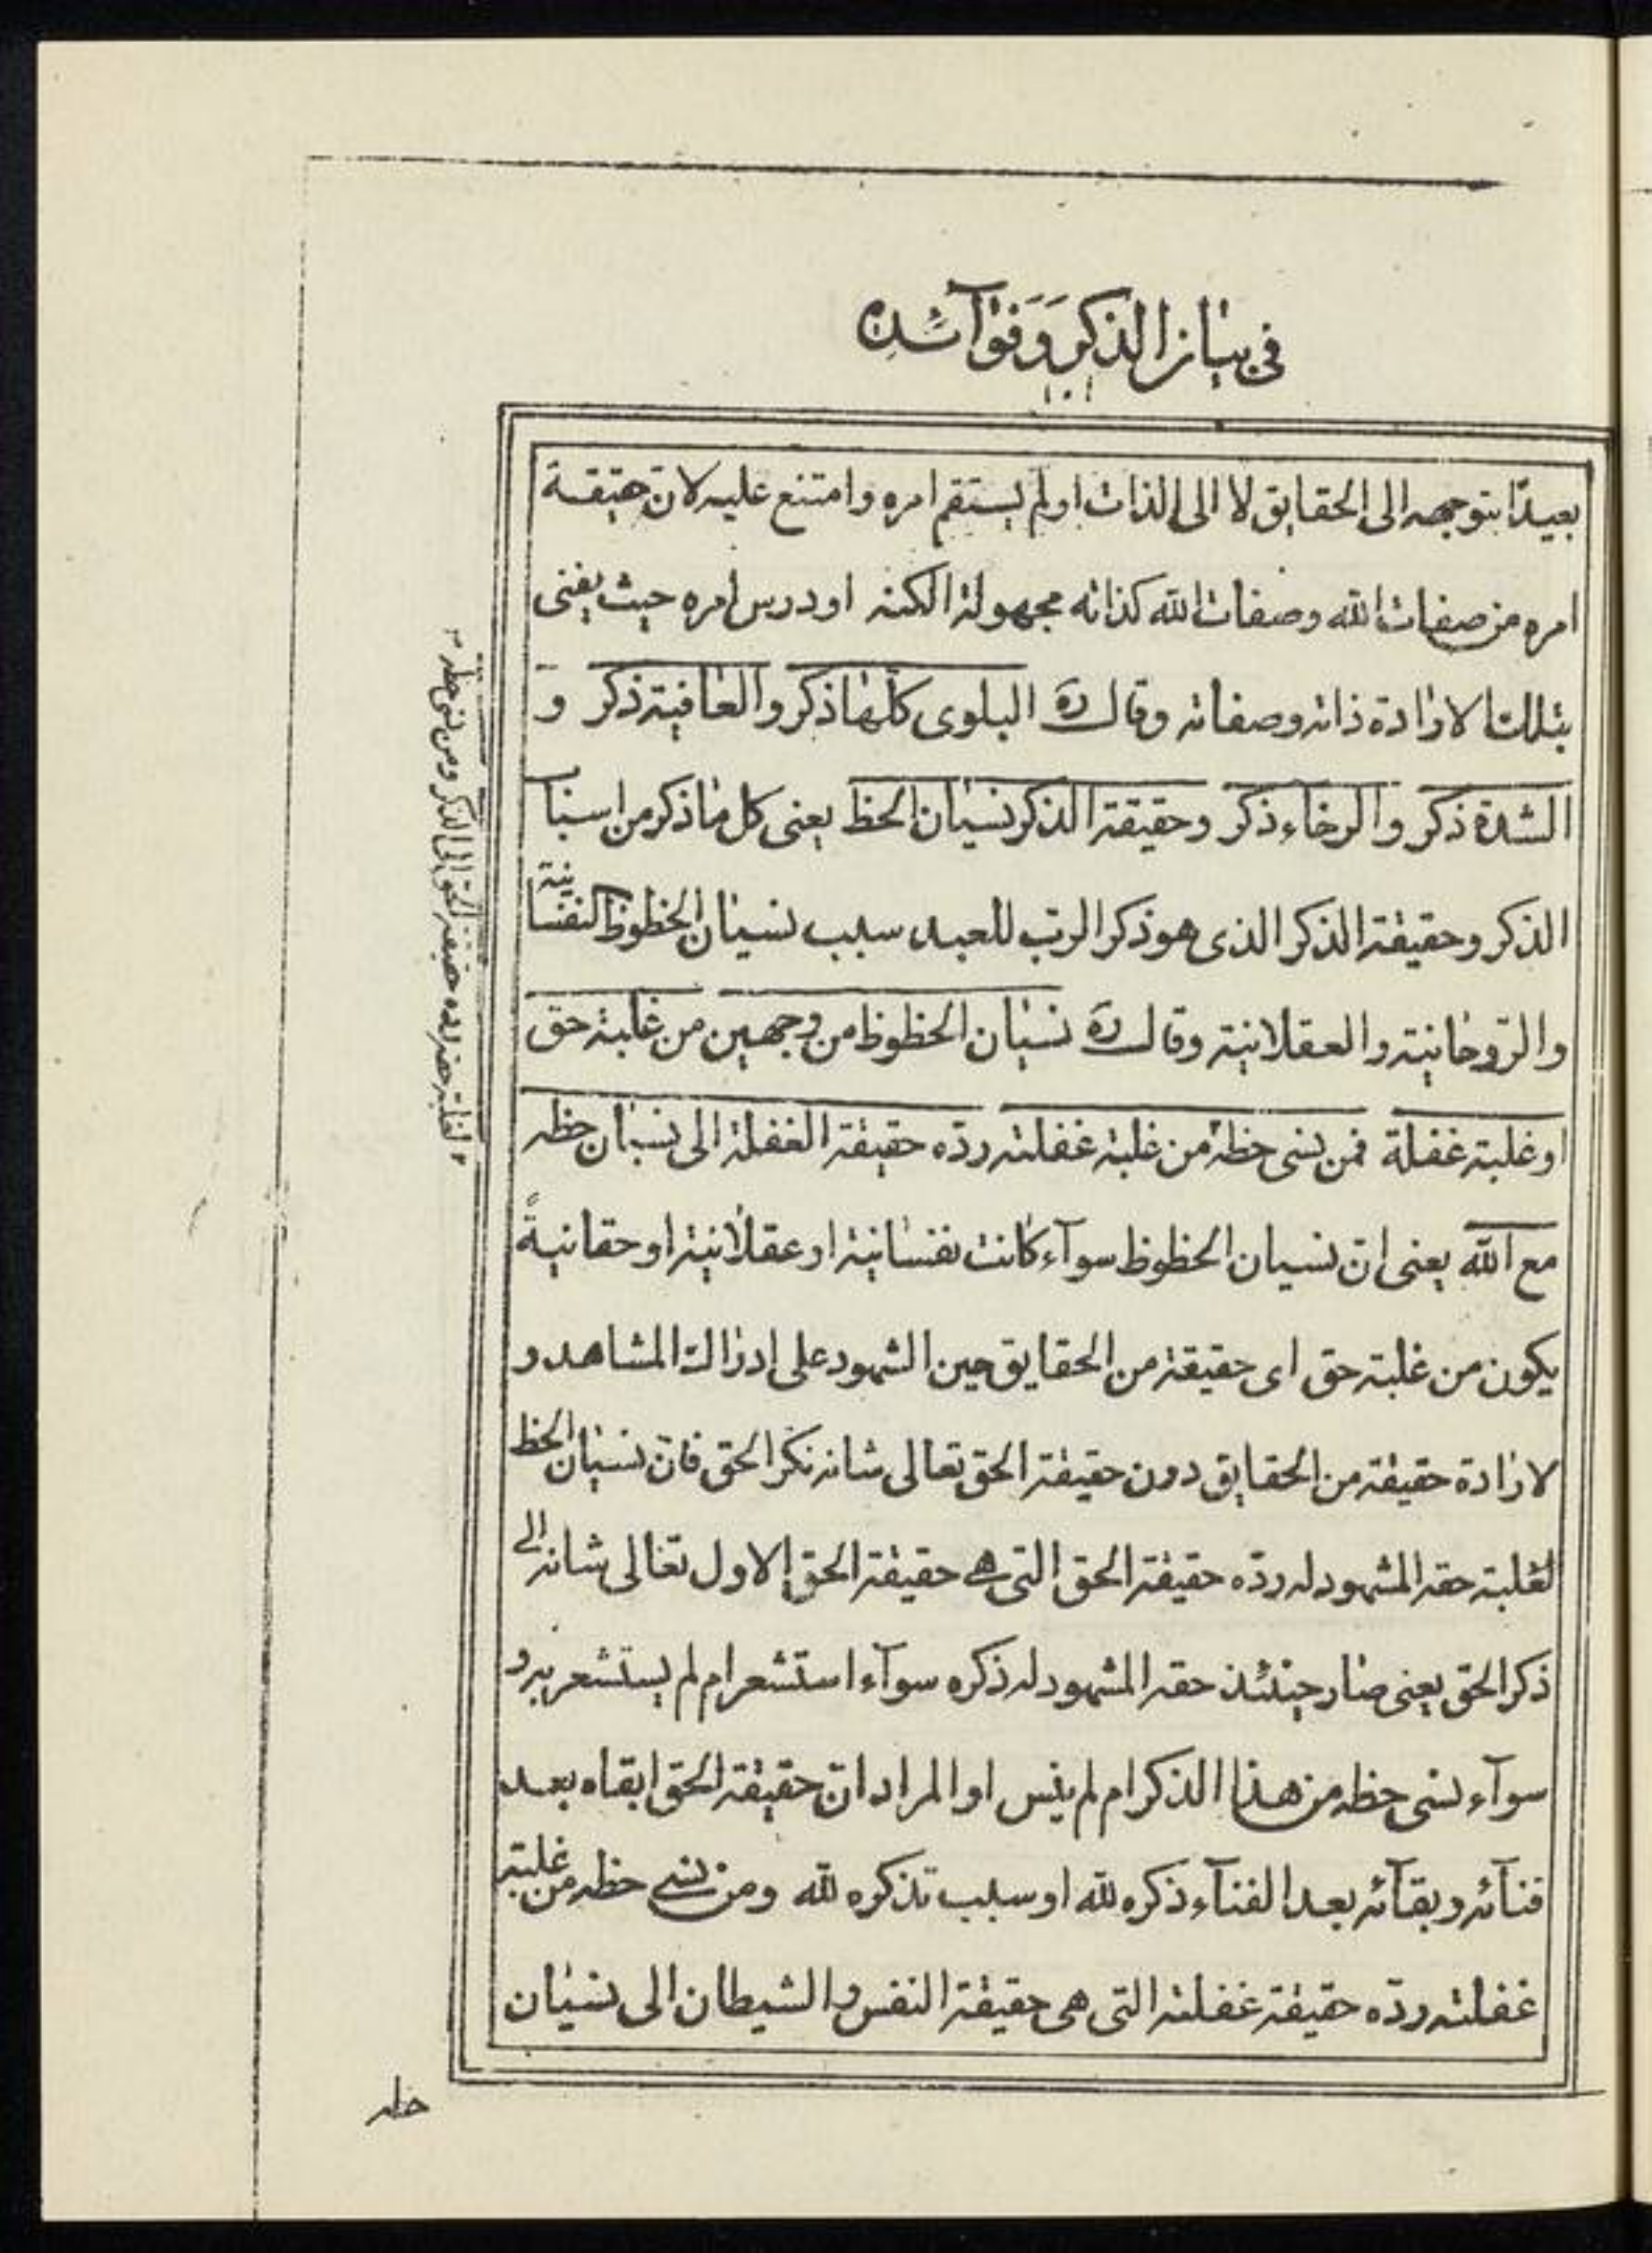 في بيان الذكر وَفوآئده
بعيدًا بتوجهه الى الحقايق لا الى الذات او لم يستقم امره وامتنع عليه لان حقيقة
امره من صفات الله وصفات الله كذاته مجهولة الكنه او درس امره حيث يفنى
بتلك الارادة ذاته وصفاته وقال ره البلوى كلها ذكر والعافية ذكر و
الشدة ذكر والرخاء ذكر وحقيقة الذكر نسيان الحظ يعنى كل ما ذكر من اسباب
الذكر وحقيقة الذكر الذى هو ذكر الرب للعبد سبب نسيان الحظوظ النفسانية
والروحانية والعقلانية وقال ره نسيان الحظوظ من وجهين من غلبة حق
او غلبة غفلة فمن نسى حظه من غلبة غفلته ردّه حقيقة الغفلة الى نسيان حظه
مع الله يعنى ان نسيان الحظوظ سوآء كانت نفسانية او عقلانية او حقانيةً
يكون من غلبة حق اى حقيقة من الحقايق حين الشهود على ادراك المشاهد و
لارادة حقيقة من الحقايق دون حقيقة الحق تعالى شانه نكر الحق فان نسيان الحظ
لغلبة حقه المشهود له ردّه حقيقة الحق التى هى حقيقة الحق الاول تعالى شانه الى
ذكر الحق يعنى صار حينئذ حقه المشهود له ذكره سوآء استشعر ام لم يستشعر به و
سوآء نسى حظه من هذا الذكر ام لم ينس او المراد ان حقيقة الحق ابقاه بعد
فنآئه وبقآئه بعد الفنآء ذكره لله او سبب تذكره لله ومن نسى حظه من غلبة
غفلته ردّه حقيقة غفلته التى هى حقيقة النفس والشيطان الى نسيان
حظه
لغلبة حقه رده حقيقة الحق الى الذكر ومن نسى حظه